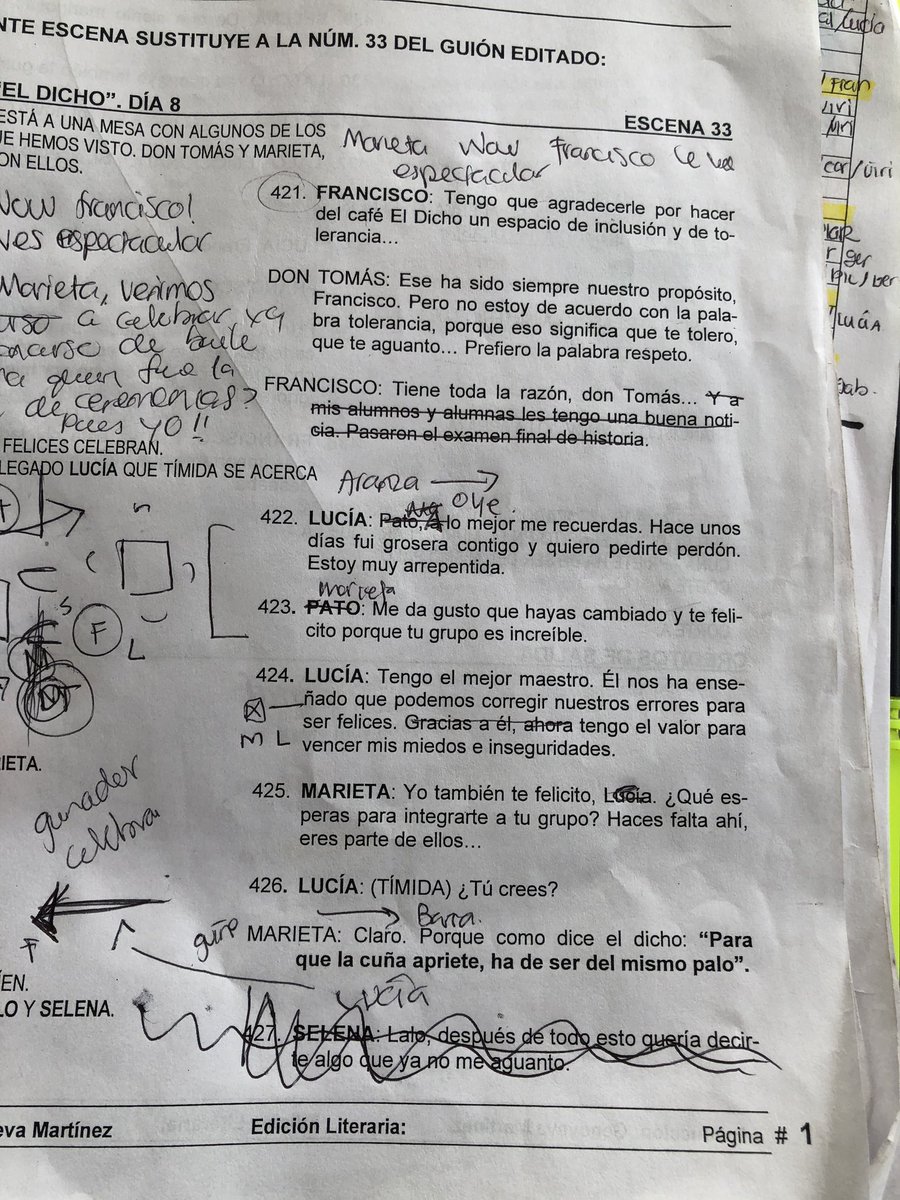 NTE ESCENA SUSTITUYE A LA NÚM. 33 DEL GUIÓN EDITADO:
"EL DICHO". DÍA 8
ESCENA 33
ESTÁ A UNA MESA CON ALGUNOS DE LOS
UE HEMOS VISTO. DON TOMÁS Y MARIETA,
ON ELLOS.
Wow francisco!
ves espectacular
Marieta, venimos
a celebrar, ya
de baile
quien fue la
de ceremonias?
pues yo!!
FELICES CELEBRAN.
LEGADO LUCÍA QUE TÍMIDA SE ACERCA
F
L
DT
M L
IETA.
ganador
celebra
F
ÉN.
LO Y SELENA.
Marieta Wow Francisco te ves
espectacular
421. FRANCISCO: Tengo que agradecerle por hacer
del café El Dicho un espacio de inclusión y de to-
lerancia...
DON TOMÁS: Ese ha sido siempre nuestro propósito,
Francisco. Pero no estoy de acuerdo con la pala-
bra tolerancia, porque eso significa que te tolero,
que te aguanto... Prefiero la palabra respeto.
FRANCISCO: Tiene toda la razón, don Tomás... Y a
mis alumnos y alumnas les tengo una buena noti-
cia. Pasaron el examen final de historia.
Aranza
Oye.
422. LUCÍA: Pato, A lo mejor me recuerdas. Hace unos
días fui grosera contigo y quiero pedirte perdón.
Estoy muy arrepentida.
Marieta
423. PATO: Me da gusto que hayas cambiado y te feli-
cito porque tu grupo es increíble.
424. LUCÍA: Tengo el mejor maestro. Él nos ha ense-
ñado que podemos corregir nuestros errores para
ser felices. Gracias a él, ahora tengo el valor para
vencer mis miedos e inseguridades.
425. MARIETA: Yo también te felicito, Lucía. ¿Qué es-
peras para integrarte a tu grupo? Haces falta ahí,
eres parte de ellos...
426. LUCÍA: (TÍMIDA) ¿Tú crees?
Barra.
guiño
MARIETA: Claro. Porque como dice el dicho: “Para
que la cuña apriete, ha de ser del mismo palo”.
Lucía
427. SELENA: Lalo, después de todo esto quería decir-
te algo que ya no me aguanto.
eva Martínez
Edición Literaria:
Página # 1
Fran
Lucía